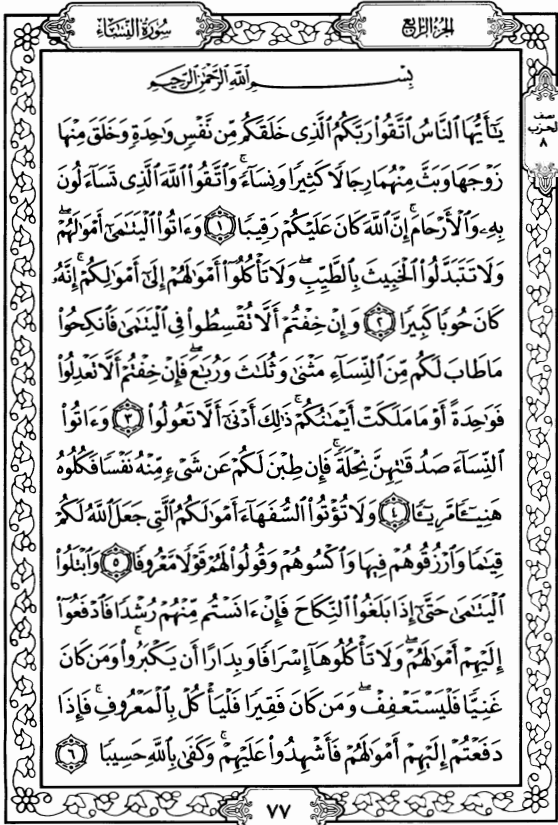 سُورَةُ النِّسَاءِ
الجُزءُ الرَّابِعُ
نصف
الحزب
٨
بِسْمِ اللَّهِ الرَّحْمَٰنِ الرَّحِيمِ
يَٰٓأَيُّهَا ٱلنَّاسُ ٱتَّقُوا۟ رَبَّكُمُ ٱلَّذِى خَلَقَكُم مِّن نَّفْسٍ وَٰحِدَةٍ وَخَلَقَ مِنْهَا
زَوْجَهَا وَبَثَّ مِنْهُمَا رِجَالًا كَثِيرًا وَنِسَآءً ۚ وَٱتَّقُوا۟ ٱللَّهَ ٱلَّذِى تَسَآءَلُونَ
بِهِۦ وَٱلْأَرْحَامَ ۚ إِنَّ ٱللَّهَ كَانَ عَلَيْكُمْ رَقِيبًا ١ وَءَاتُوا۟ ٱلْيَتَٰمَىٰٓ أَمْوَٰلَهُمْ ۖ
وَلَا تَتَبَدَّلُوا۟ ٱلْخَبِيثَ بِٱلطَّيِّبِ ۖ وَلَا تَأْكُلُوٓا۟ أَمْوَٰلَهُمْ إِلَىٰٓ أَمْوَٰلِكُمْ ۚ إِنَّهُۥ
كَانَ حُوبًا كَبِيرًا ٢ وَإِنْ خِفْتُمْ أَلَّا تُقْسِطُوا۟ فِى ٱلْيَتَٰمَىٰ فَٱنكِحُوا۟
مَا طَابَ لَكُم مِّنَ ٱلنِّسَآءِ مَثْنَىٰ وَثُلَٰثَ وَرُبَٰعَ ۖ فَإِنْ خِفْتُمْ أَلَّا تَعْدِلُوا۟
فَوَٰحِدَةً أَوْ مَا مَلَكَتْ أَيْمَٰنُكُمْ ۚ ذَٰلِكَ أَدْنَىٰٓ أَلَّا تَعُولُوا۟ ٣ وَءَاتُوا۟
ٱلنِّسَآءَ صَدُقَٰتِهِنَّ نِحْلَةً ۚ فَإِن طِبْنَ لَكُمْ عَن شَىْءٍ مِّنْهُ نَفْسًا فَكُلُوهُ
هَنِيٓـًٔا مَّرِيٓـًٔا ٤ وَلَا تُؤْتُوا۟ ٱلسُّفَهَآءَ أَمْوَٰلَكُمُ ٱلَّتِى جَعَلَ ٱللَّهُ لَكُمْ
قِيَٰمًا وَٱرْزُقُوهُمْ فِيهَا وَٱكْسُوهُمْ وَقُولُوا۟ لَهُمْ قَوْلًا مَّعْرُوفًا ٥ وَٱبْتَلُوا۟
ٱلْيَتَٰمَىٰ حَتَّىٰٓ إِذَا بَلَغُوا۟ ٱلنِّكَاحَ فَإِنْ ءَانَسْتُم مِّنْهُمْ رُشْدًا فَٱدْفَعُوٓا۟
إِلَيْهِمْ أَمْوَٰلَهُمْ ۖ وَلَا تَأْكُلُوهَآ إِسْرَافًا وَبِدَارًا أَن يَكْبَرُوا۟ ۚ وَمَن كَانَ
غَنِيًّا فَلْيَسْتَعْفِفْ ۖ وَمَن كَانَ فَقِيرًا فَلْيَأْكُلْ بِٱلْمَعْرُوفِ ۚ فَإِذَا
دَفَعْتُمْ إِلَيْهِمْ أَمْوَٰلَهُمْ فَأَشْهِدُوا۟ عَلَيْهِمْ ۚ وَكَفَىٰ بِٱللَّهِ حَسِيبًا ٦
٧٧